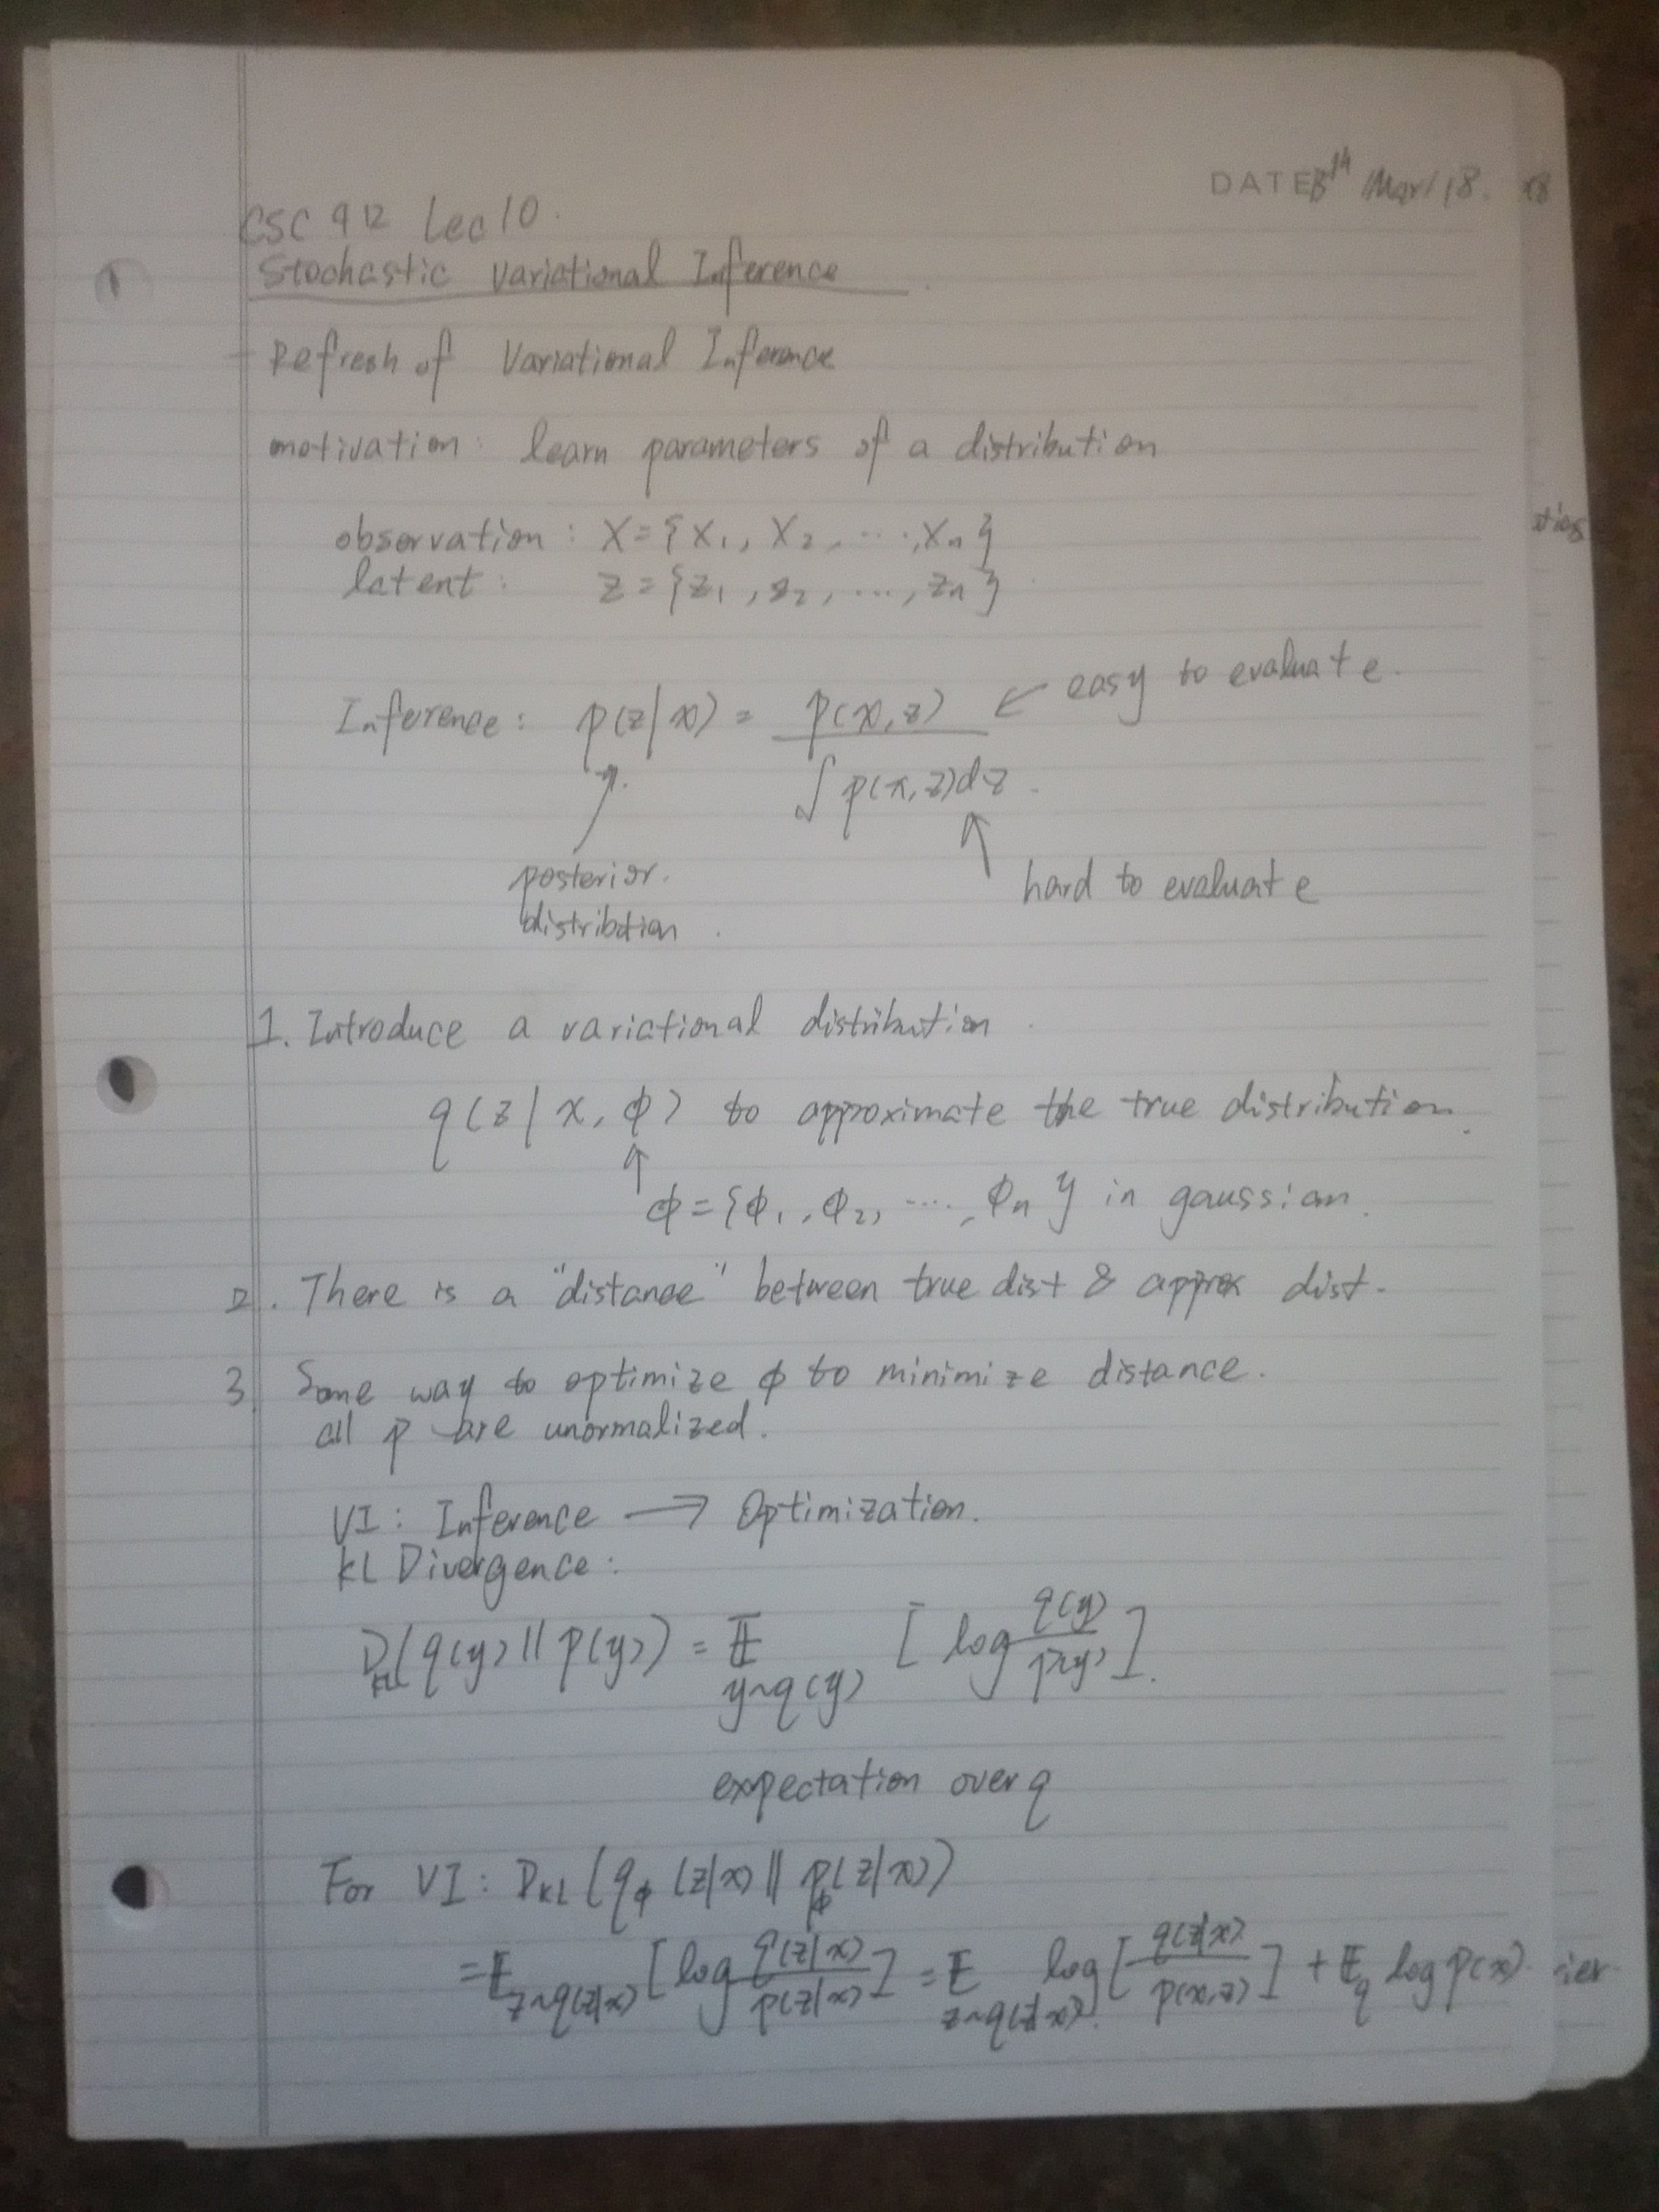 DATE Mar/18.
CSC 412 Lec 10.
Stochastic Variational Inference
- Refresh of Variational Inference
motivation: learn parameters of a distribution
observation: X = {x₁, x₂, ..., xₙ}
latent: z = {z₁, z₂, ..., zₙ}
Inference: p(z|x) = p(x,z) / ∫ p(x,z)dz ← easy to evaluate.
posterior. distribution
hard to evaluate
1. Introduce a variational distribution
q(z|x, φ) to approximate the true distribution.
φ = {φ₁, φ₂, ..., φₙ} in gaussian.
2. There is a "distance" between true dist & approx dist.
3. Some way to optimize φ to minimize distance.
all p are unormalized.
VI: Inference → Optimization.
KL Divergence:
D_KL(q(y) || p(y)) = E_{y~q(y)} [log q(y)/p(y)].
expectation over q
For VI: D_KL(q_φ(z|x) || p_φ(z|x))
= E_{z~q(z|x)} [log q(z|x)/p(z|x)] = E_{z~q(z|x)} log[q(z|x)/p(x,z)] + E_q log p(x)